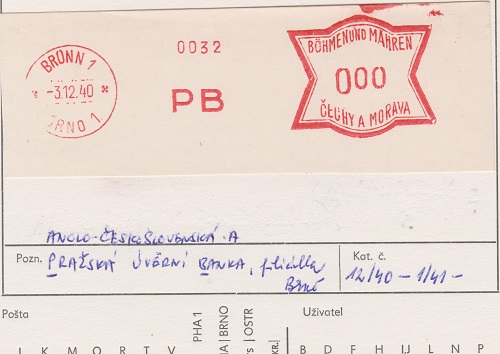 BRÜNN 1
-3.12.40
BRNO 1
0032
PB
BÖHMEN UND MÄHREN
000
ČECHY A MORAVA
ANGLO-ČESKOSLOVENSKÁ A
Pozn. PRAŽSKÁ ÚVĚRNÍ BANKA, filiálka
Brně
Kat. č.
12/40 - 1/41 -
Pošta
PHA 1
BRNO
OSTR
Uživatel
K M O R T V
B D F H IJ L N P